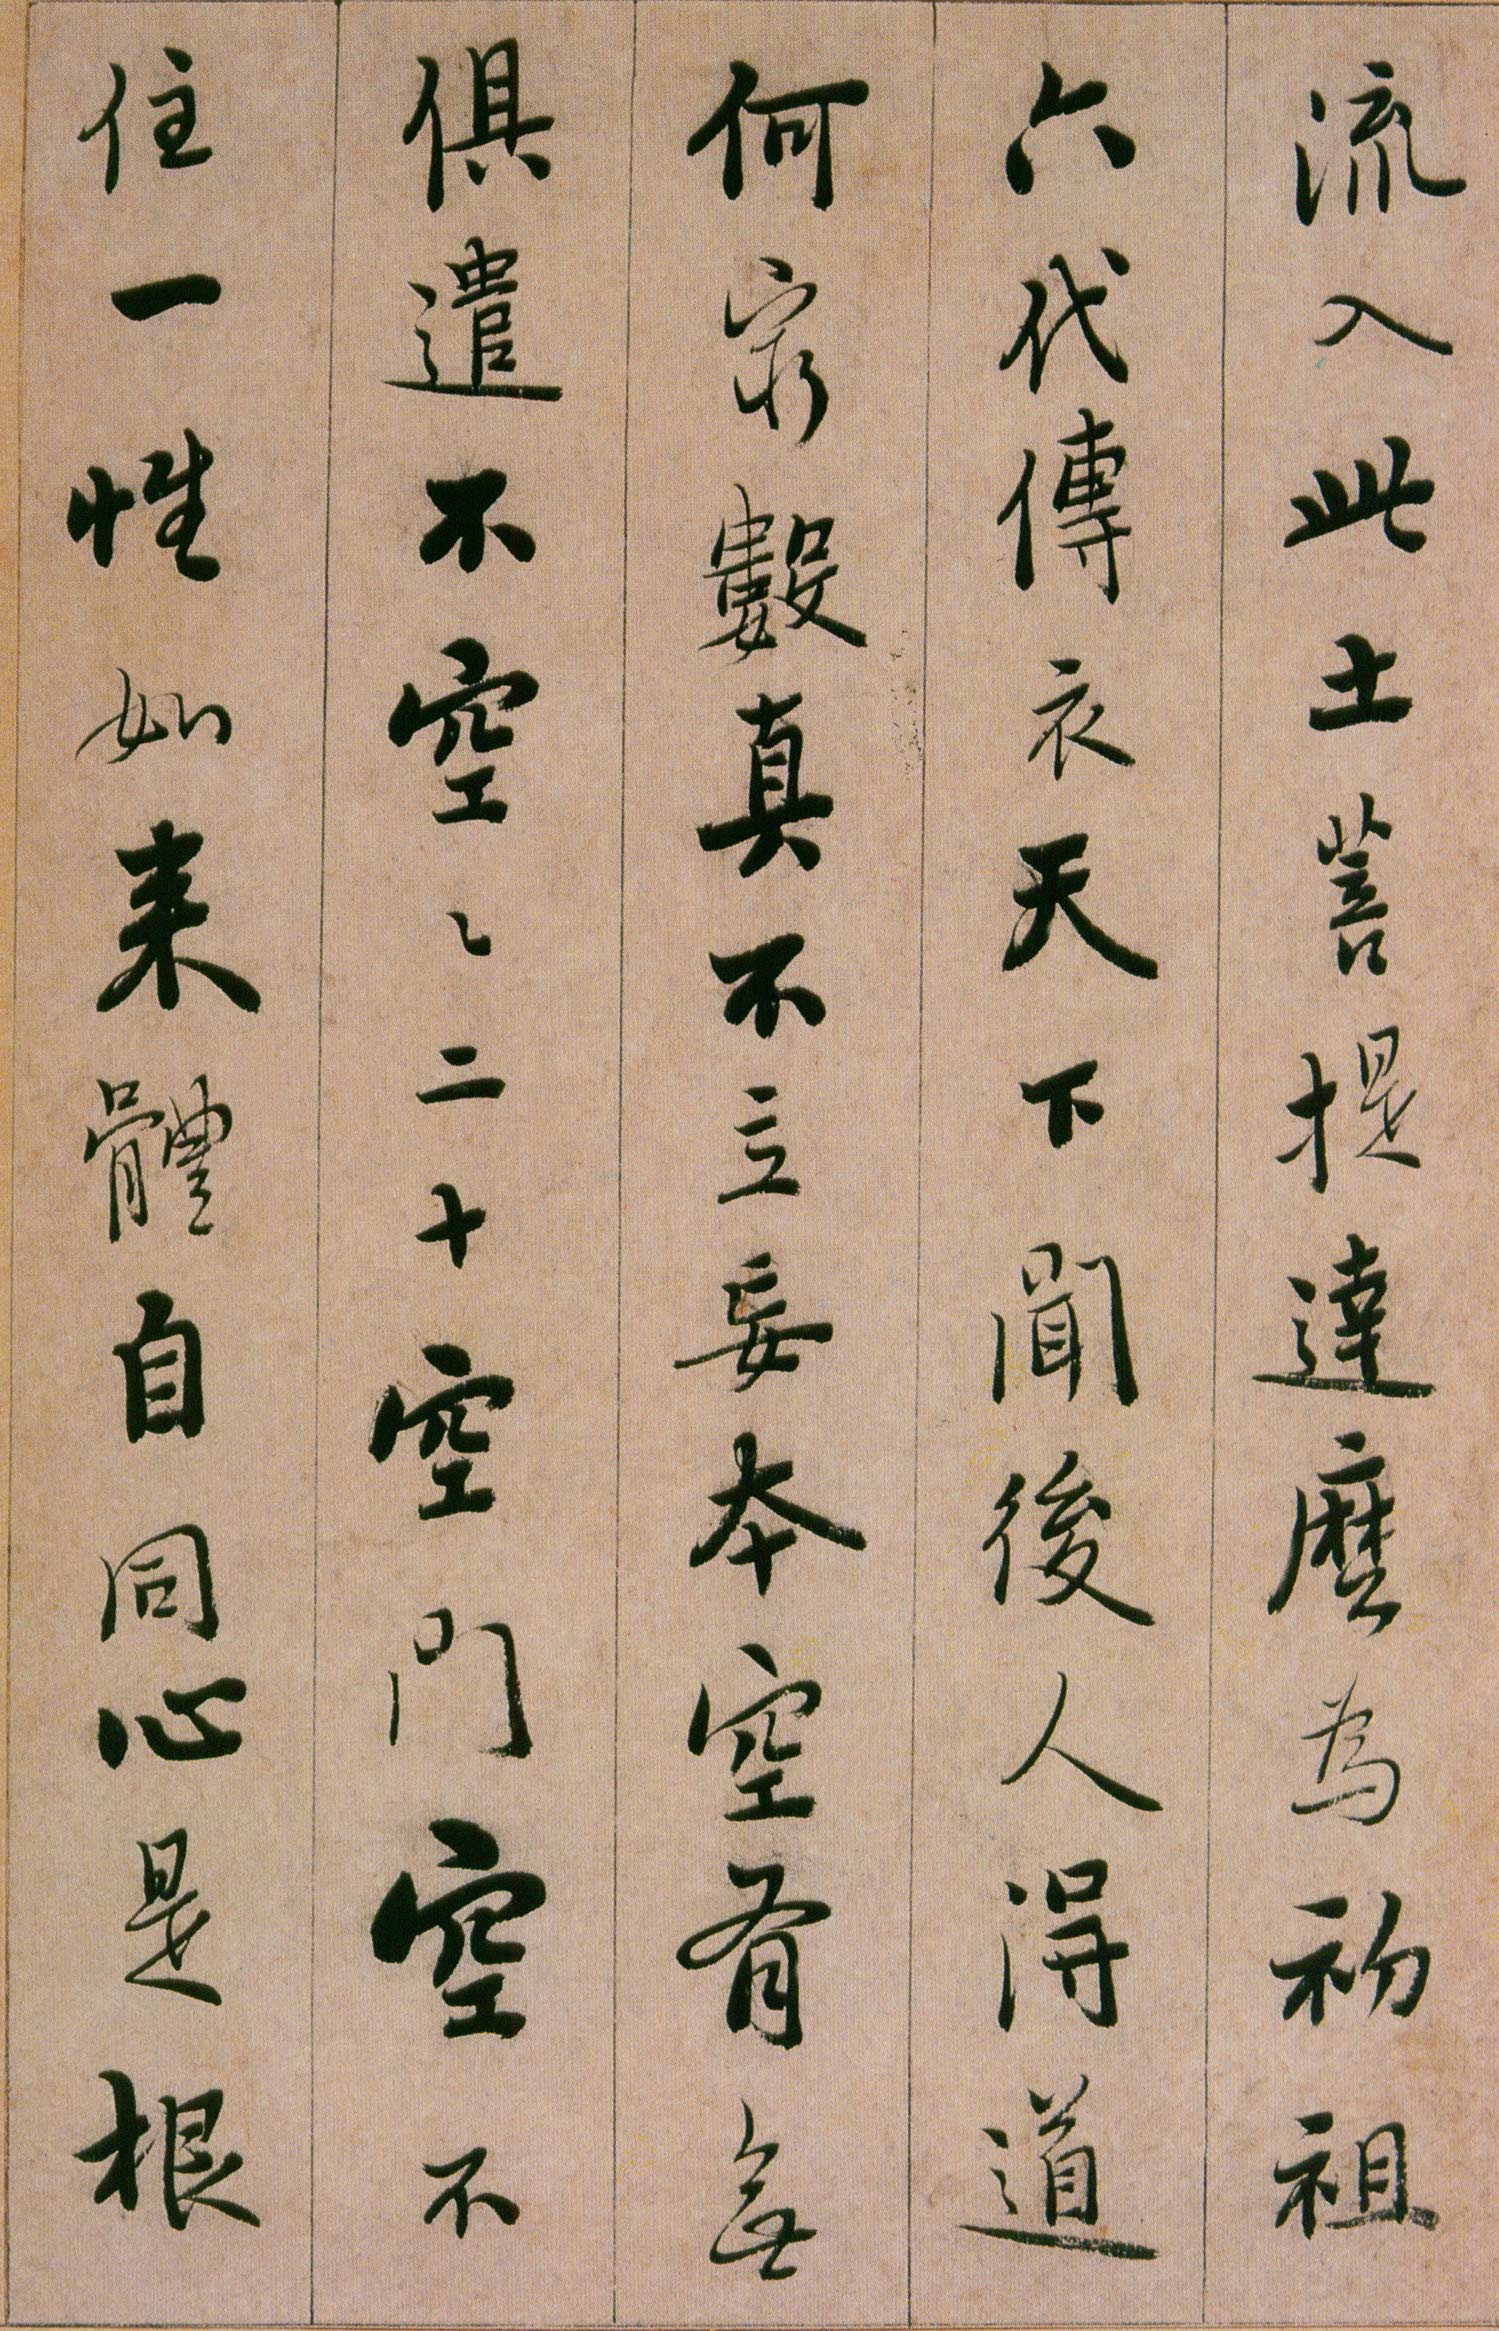 流入此土菩提達磨為初祖
六代傳衣天下聞後人得道
何窮數真不立妄本空有無
俱遣不空〻二十空門空不
住一性如來體自同心是根